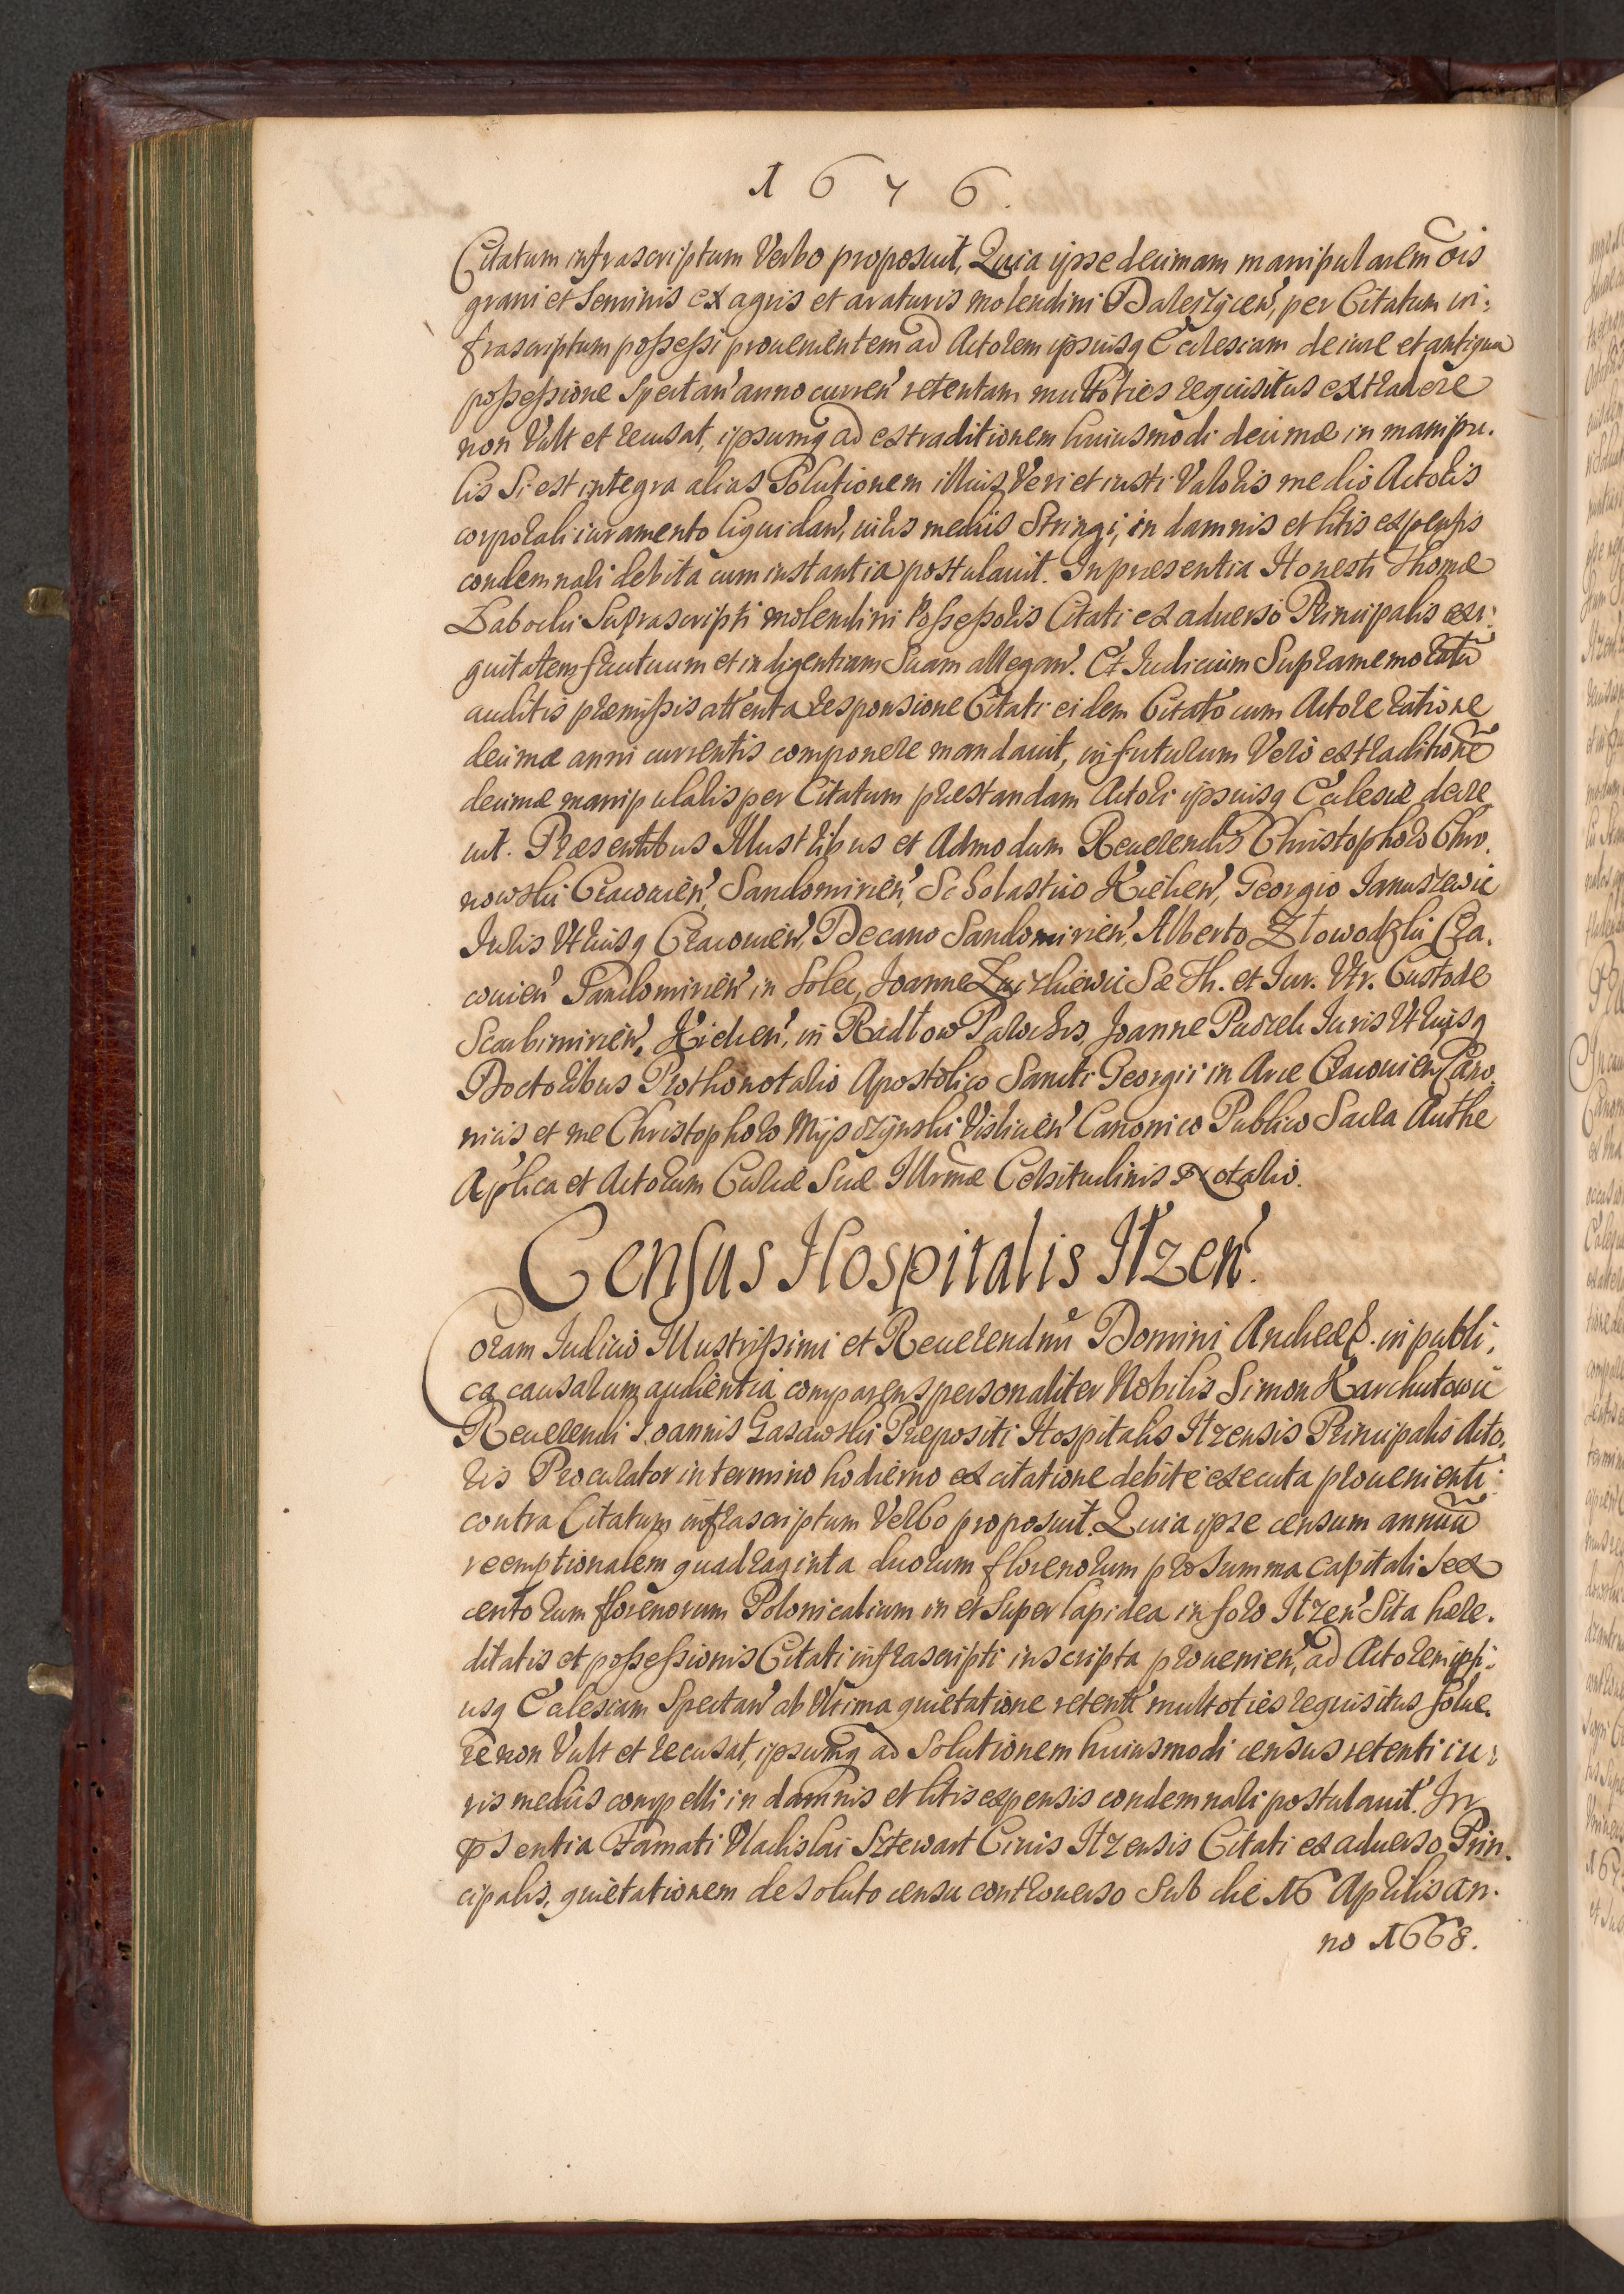 1676.
Citatum infrascriptum Verbo proposuit, Quia ipse decimam manipularem ois
grani et Seminis ex agris et araturis molendini Daleszycen, per Citatum in:
frascriptum possessi prouenientem ad Actorem ipsiusq Ecclesiam de iure et antiqua
possessione Spectan anno curren retentam multoties requisitus extradere
non Vult et recusat, ipsumq ad extraditionem huiusmodi decimæ in manipu.
lis Si est integra alias Solutionem illius Veri et iusti Valoris medio Actoris
corporali iuramento liquidan, iuris mediis Stringi, in damnis et litis expensis
condemnari debita cum instantia postulauit. In præsentia Honesti Thomæ
Zabocki Suprascripti molendini Possessoris Citati ex aduerso Principalis exi:
guitatem fructuum et indigentiam Suam allegan. Et Iudicium Supramemoratũ
auditis præmissis attenta responsione Citati eidem Citato cum Actore ratione
decimæ anni currentis componere mandauit, in futurum Vero extraditionẽ
decimæ manipularis per Citatum præstandam Actori ipsiusq Ecclesiæ decre
uit. Præsentibus Illustribus et Admodum Reuerendis Christophoro Chro.
nowski Cracouien, Sandomirien, Scholastico Kielcen, Georgio Januszewic
Iuris Utriusq Cracouien, Decano Sandomirien, Alberto Złowodzki Cra.
couien Sandomirien in Solec, Joanne Sæ Th. et Iur. Vtr. Custode
Scarbimirien, Kielcen, in Radłow Parochis, Joanne Paszek Iuris Utriusq
Doctoribus Prothonotario Apostolico Sancti Georgii in Arce Cracouien Cano
nicis et me Christophoro Myszczynski Vislicien Canonico Publico Sacra Authe
Aplica et Actorum Curiæ Suæ Illrmæ Celsitudinis Notario.
Census Hospitalis Itzen.
Coram Iudicio Illustrissimi et Reuerendmi Domini Andreæ &. in publi:
ca causarum audientia comparens personaliter Nobilis Simon Karchutowic
Reuerendi Joannis Gasawski Præpositi Hospitalis Itzensis Principalis Acto.
ris Procurator in termino hodierno ex citatione debite executa prouenienti:
contra Citatum infrascriptum Verbo proposuit. Quia ipse censum annuũ
reemptionalem quadraginta duorum florenorum pro Summa capitali Sex
centorum florenorum Polonicalium in et Super lapidea in foro Itzen Sita hære.
ditatis et possessionis Citati infrascripti inscripta prouenien, ad Actorem ipsi:
usq Ecclesiam Spectan ab Vltima quietatione retent multoties requisitus Solue.
re non Vult et recusat, ipsumq ad Solutionem huiusmodi census retenti iu:
ris mediis compelli in damnis et litis expensis condemnari postulauit. In
psentia Famati Vladislai Sztewart Ciuis Itzensis Citati ex aduerso Prin.
cipalis, quietationem de soluto censu controuerso Sub die 16 Aprilis an.
no 1668.